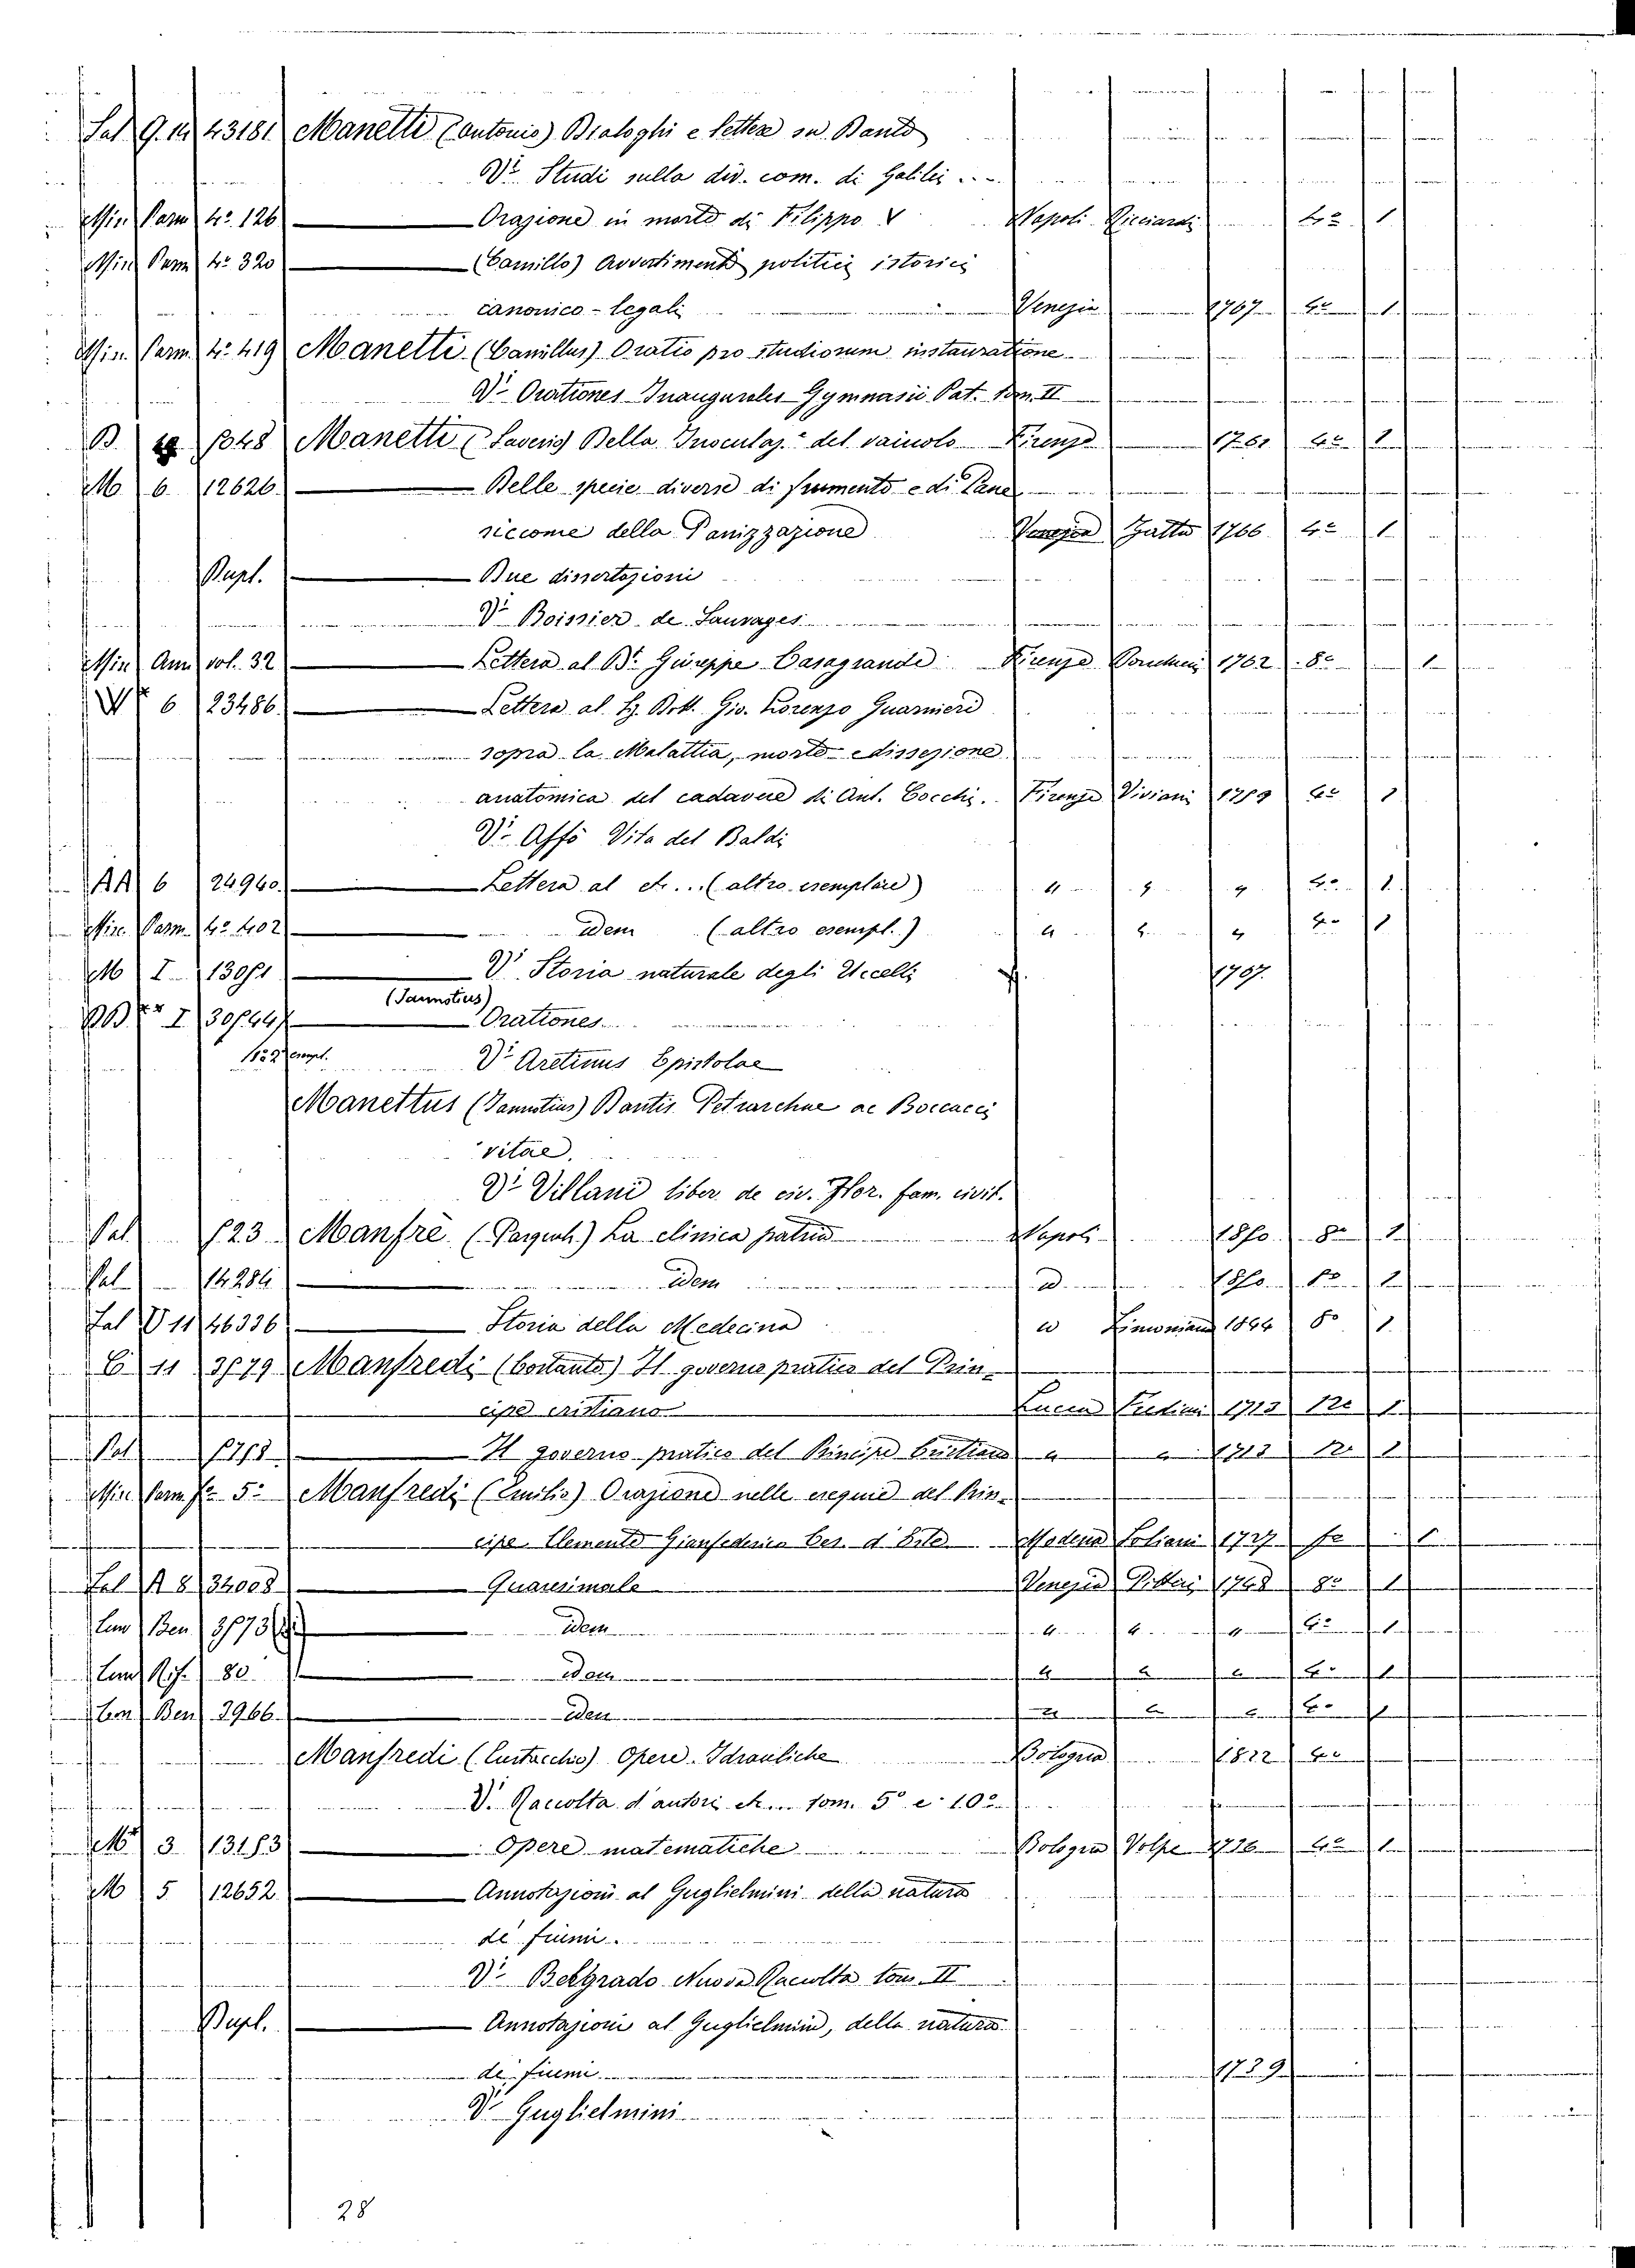 Sal G. 14 43181 Manetti (Antonio) Dialoghi e lettere su Dante
Vi. Studi sulla div. com. di Galilei ...
Min Parm 4o. 126 Orazione in morte di Filippo V Napoli Ricciardi 4o 1
Min Parm 4o 320 (Camillo) Avvertimenti politici istorici
canonico - legali Venezia 1767 4o 1
Min. Parm. 4o. 419 Manetti (Camillus) Oratio pro studiorum instauratione
Vi Orationes Inaugurales Gymnasii Pat. tom. II
B. 1048 Manetti (Saverio) Della Inoculaz.e del vaiuolo Firenze 1761 4o 1
M 6 12626 Delle specie diverse di frumento e di Pane
siccome della Panizzazione Venezia Gatto 1766 4o 1
Dupl. Due dissertazioni
Vi Boissier de Sauvages
Min Ann vol. 32 Lettera al Dr. Giuseppe Casagrande Firenze 1762 8o 1
6 23486 Lettera al Sg. Dott. Gio. Lorenzo Guarnieri
sopra la Malattia, morte dissezione
anatomica del cadavere di Ant. Cocchi. Firenze Viviani 1759 4o 1
Vi. Affò Vita del Baldi
AA 6 24940. Lettera al etc... (altro esemplare) " " " 4o 1
Min. Parm. 4o 402 idem (altro esempl.) " " " 4o 1
M I 13091 Vi. Storia naturale degli Uccelli 1767
I 30744 (Jannotius) Orationes
Vi Aretinus Epistolae
Manettus (Jannotius) Dantis Petrarchae ac Boccacci
vitae.
Vi Villani liber de civ. Flor. fam. civit.
Sal 123 Manfrè (Pasqual.) La clinica patria Napoli 1850 8o 1
Sal 14284 idem id. 1850 8o 1
Sal V 11 46336 Storia della Medecina id 1844 8o 1
E 11 3579 Manfredi (Costanto) Il governo pratico del Prin-
cipe cristiano Lucca 1713 12o 1
Sal 1718 Il governo pratico del Principe Cristiano " " 1713 12o 1
Min Parm fo 5o Manfredi (Emilio) Orazione nelle esequie del Prin-
cipe Clemente Gianfederico Ces. d'Este Modena Soliani 1727 fo 1
Sal A 8 34008 Quaresimale Venezia Pitteri 1748 8o 1
Ben 3573 idem " " " 4o 1
80 idem " " " 4o 1
Ben 2966 idem " " " 4o 1
Manfredi (Eustacchio) Opere Idrauliche Bologna 1822 4o
V. Raccolta d'autori etc... tom. 5o e 10o
M 3 13153 Opere matematiche Bologna Volpe 1736 4o 1
M 5 12652 Annotazioni al Guglielmini della natura
de fiumi
Vi Belgrado Nuova Raccolta tom. II
Dupl. Annotazioni al Guglielmini, della natura
de fiumi 1739
Vi Guglielmini
28